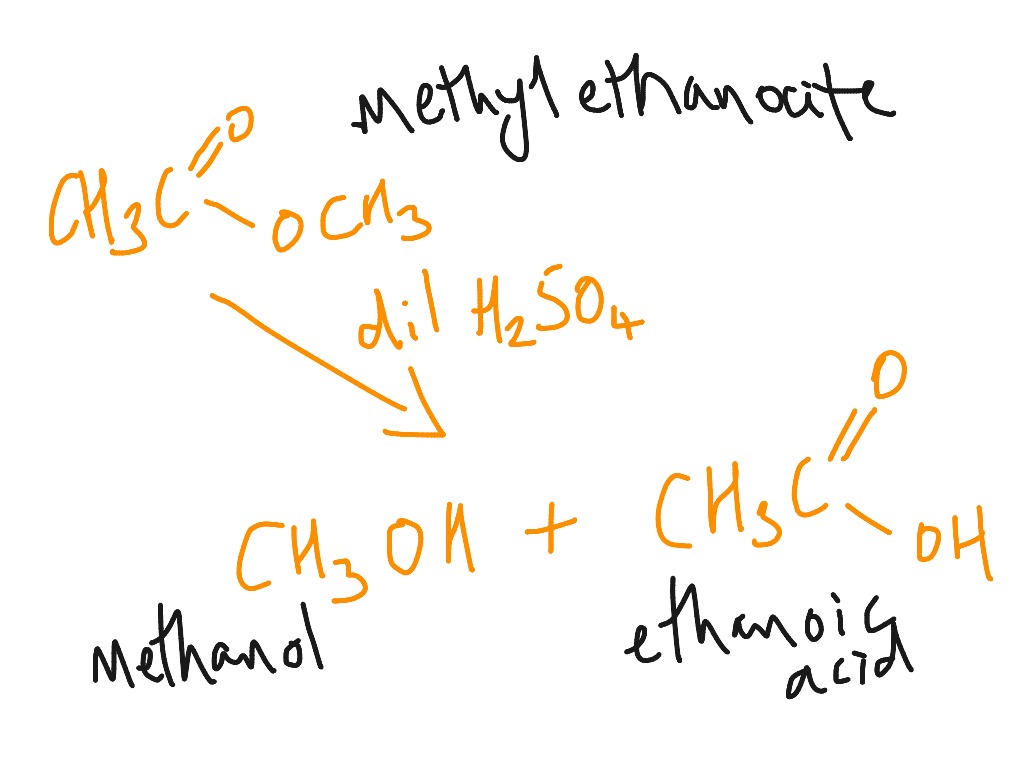 methyl ethanoate
CH3C=O
OCH3
dil H2SO4
CH3OH + CH3C=O
OH
methanol
ethanoic
acid